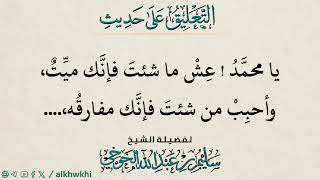 التَّعْلِيقُ عَلَى حَدِيثِ
يا محمَّدُ ! عِشْ ما شئتَ فإنَّك ميِّتٌ،
وأحبِبْ من شئتَ فإنَّك مفارقُه،....
لفضيلة الشيخ
سليم بن عبد الله الخوخي
/ alkhwkhi